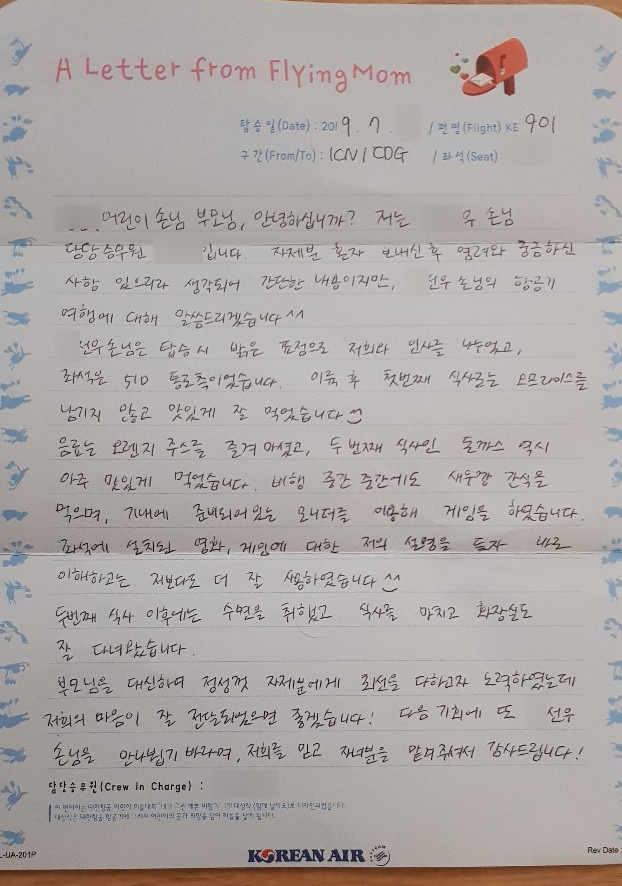 A Letter from Flying Mom
탑승일(Date) : 2019. 7. / 편명(Flight) KE 901
구간(From/To) : ICN / CDG / 좌석(Seat)
어린이 손님 부모님, 안녕하십니까? 저는 우 손님
담당 승무원 입니다. 자제분 혼자 보내신 후 염려와 궁금하신
사항 있으리라 생각되어 간단한 내용이지만, 선우 손님의 항공기
여행에 대해 말씀드리겠습니다^^
선우 손님은 탑승 시 밝은 표정으로 저희와 인사를 나누었고,
좌석은 51D 통로측이었습니다. 이륙 후 첫번째 식사로는 오므라이스를
남기지 않고 맛있게 잘 먹었습니다
음료는 오렌지 주스를 즐겨 마셨고, 두번째 식사인 돈까스 역시
아주 맛있게 먹었습니다. 비행 중간 중간에도 새우깡 간식을
먹으며, 기내에 준비되어 있는 모니터를 이용해 게임을 하였습니다.
좌석에 설치된 영화, 게임에 대한 저의 설명을 듣자 바로
이해하고는 저보다도 더 잘 사용하였습니다^^
두번째 식사 이후에는 수면을 취했고 식사를 마치고 화장실도
잘 다녀왔습니다.
부모님을 대신하여 정성껏 자제분에게 최선을 다하고자 노력하였는데
저희의 마음이 잘 전달되었으면 좋겠습니다! 다음 기회에 또 선우
손님을 만나뵙기 바라며, 저희를 믿고 자녀분을 맡겨주셔서 감사드립니다!
담당승무원(Crew In Charge) :
L-UA-201P
KOREAN AIR
Rev Date :